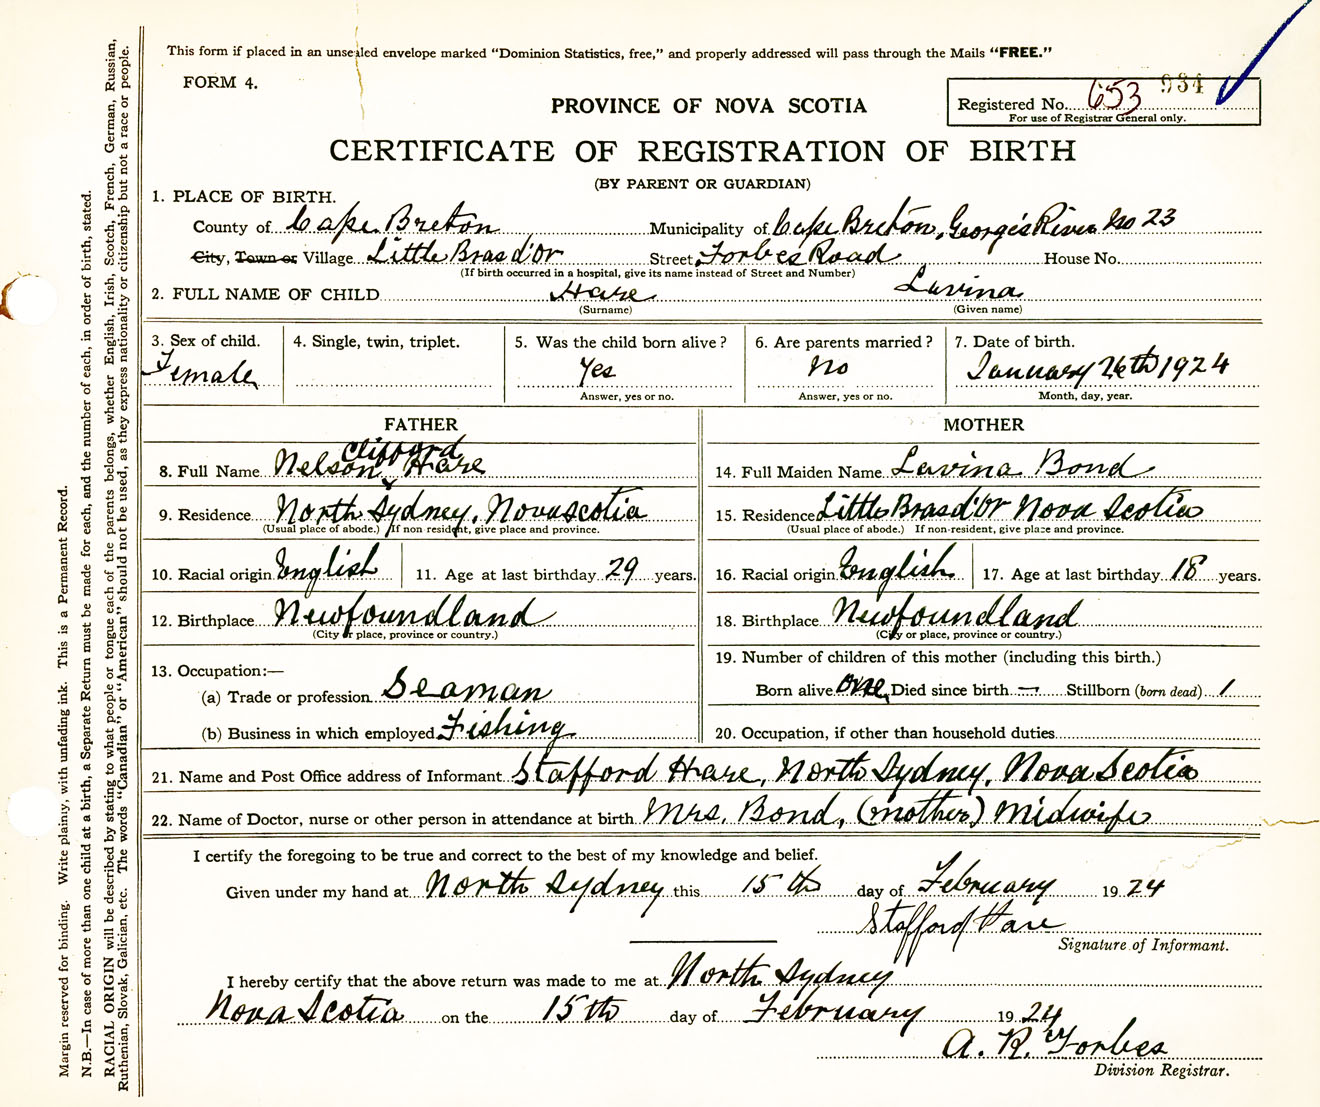 This form if placed in an unsealed envelope marked "Dominion Statistics, free," and properly addressed will pass through the Mails "FREE."
FORM 4.
934
PROVINCE OF NOVA SCOTIA
Registered No. 653
For use of Registrar General only.
CERTIFICATE OF REGISTRATION OF BIRTH
(BY PARENT OR GUARDIAN)
1. PLACE OF BIRTH.
County of Cape Breton Municipality of Cape Breton, George's River No 23
City, Town or Village Little Bras d'Or Street Forbes Road House No.
(If birth occurred in a hospital, give its name instead of Street and Number)
2. FULL NAME OF CHILD Hare Lavina
(Surname) (Given name)
3. Sex of child. 4. Single, twin, triplet. 5. Was the child born alive? 6. Are parents married? 7. Date of birth.
Female Yes No January 26th 1924
Answer, yes or no. Answer, yes or no. Month, day, year.
FATHER
Clifford
8. Full Name Nelson Hare
9. Residence North Sydney, Nova Scotia
(Usual place of abode.) If non resident, give place and province.
10. Racial origin English 11. Age at last birthday 29 years.
12. Birthplace Newfoundland
(City or place, province or country.)
13. Occupation:—
(a) Trade or profession Seaman
(b) Business in which employed Fishing
MOTHER
14. Full Maiden Name Lavina Bond
15. Residence Little Bras d'Or Nova Scotia
(Usual place of abode.) If non-resident, give place and province.
16. Racial origin English 17. Age at last birthday 18 years.
18. Birthplace Newfoundland
(City or place, province or country.)
19. Number of children of this mother (including this birth.)
Born alive one Died since birth — Stillborn (born dead) 1
20. Occupation, if other than household duties
21. Name and Post Office address of Informant Stafford Hare, North Sydney, Nova Scotia
22. Name of Doctor, nurse or other person in attendance at birth Mrs. Bond, (mother) Midwife
I certify the foregoing to be true and correct to the best of my knowledge and belief.
Given under my hand at North Sydney this 15th day of February 1924
Stafford Hare
Signature of Informant.
I hereby certify that the above return was made to me at North Sydney
Nova Scotia on the 15th day of February 1924
A. R. Forbes
Division Registrar.
Margin reserved for binding. Write plainly, with unfading ink. This is a Permanent Record.
N.B.—In case of more than one child at a birth, a Separate Return must be made for each, and the number of each, in order of birth, stated.
RACIAL ORIGIN will be described by stating to what people or tongue each of the parents belongs, whether English, Irish, Scotch, French, German, Russian,
Ruthenian, Slovak, Galician, etc. The words "Canadian" or "American" should not be used, as they express nationality or citizenship but not a race or people.